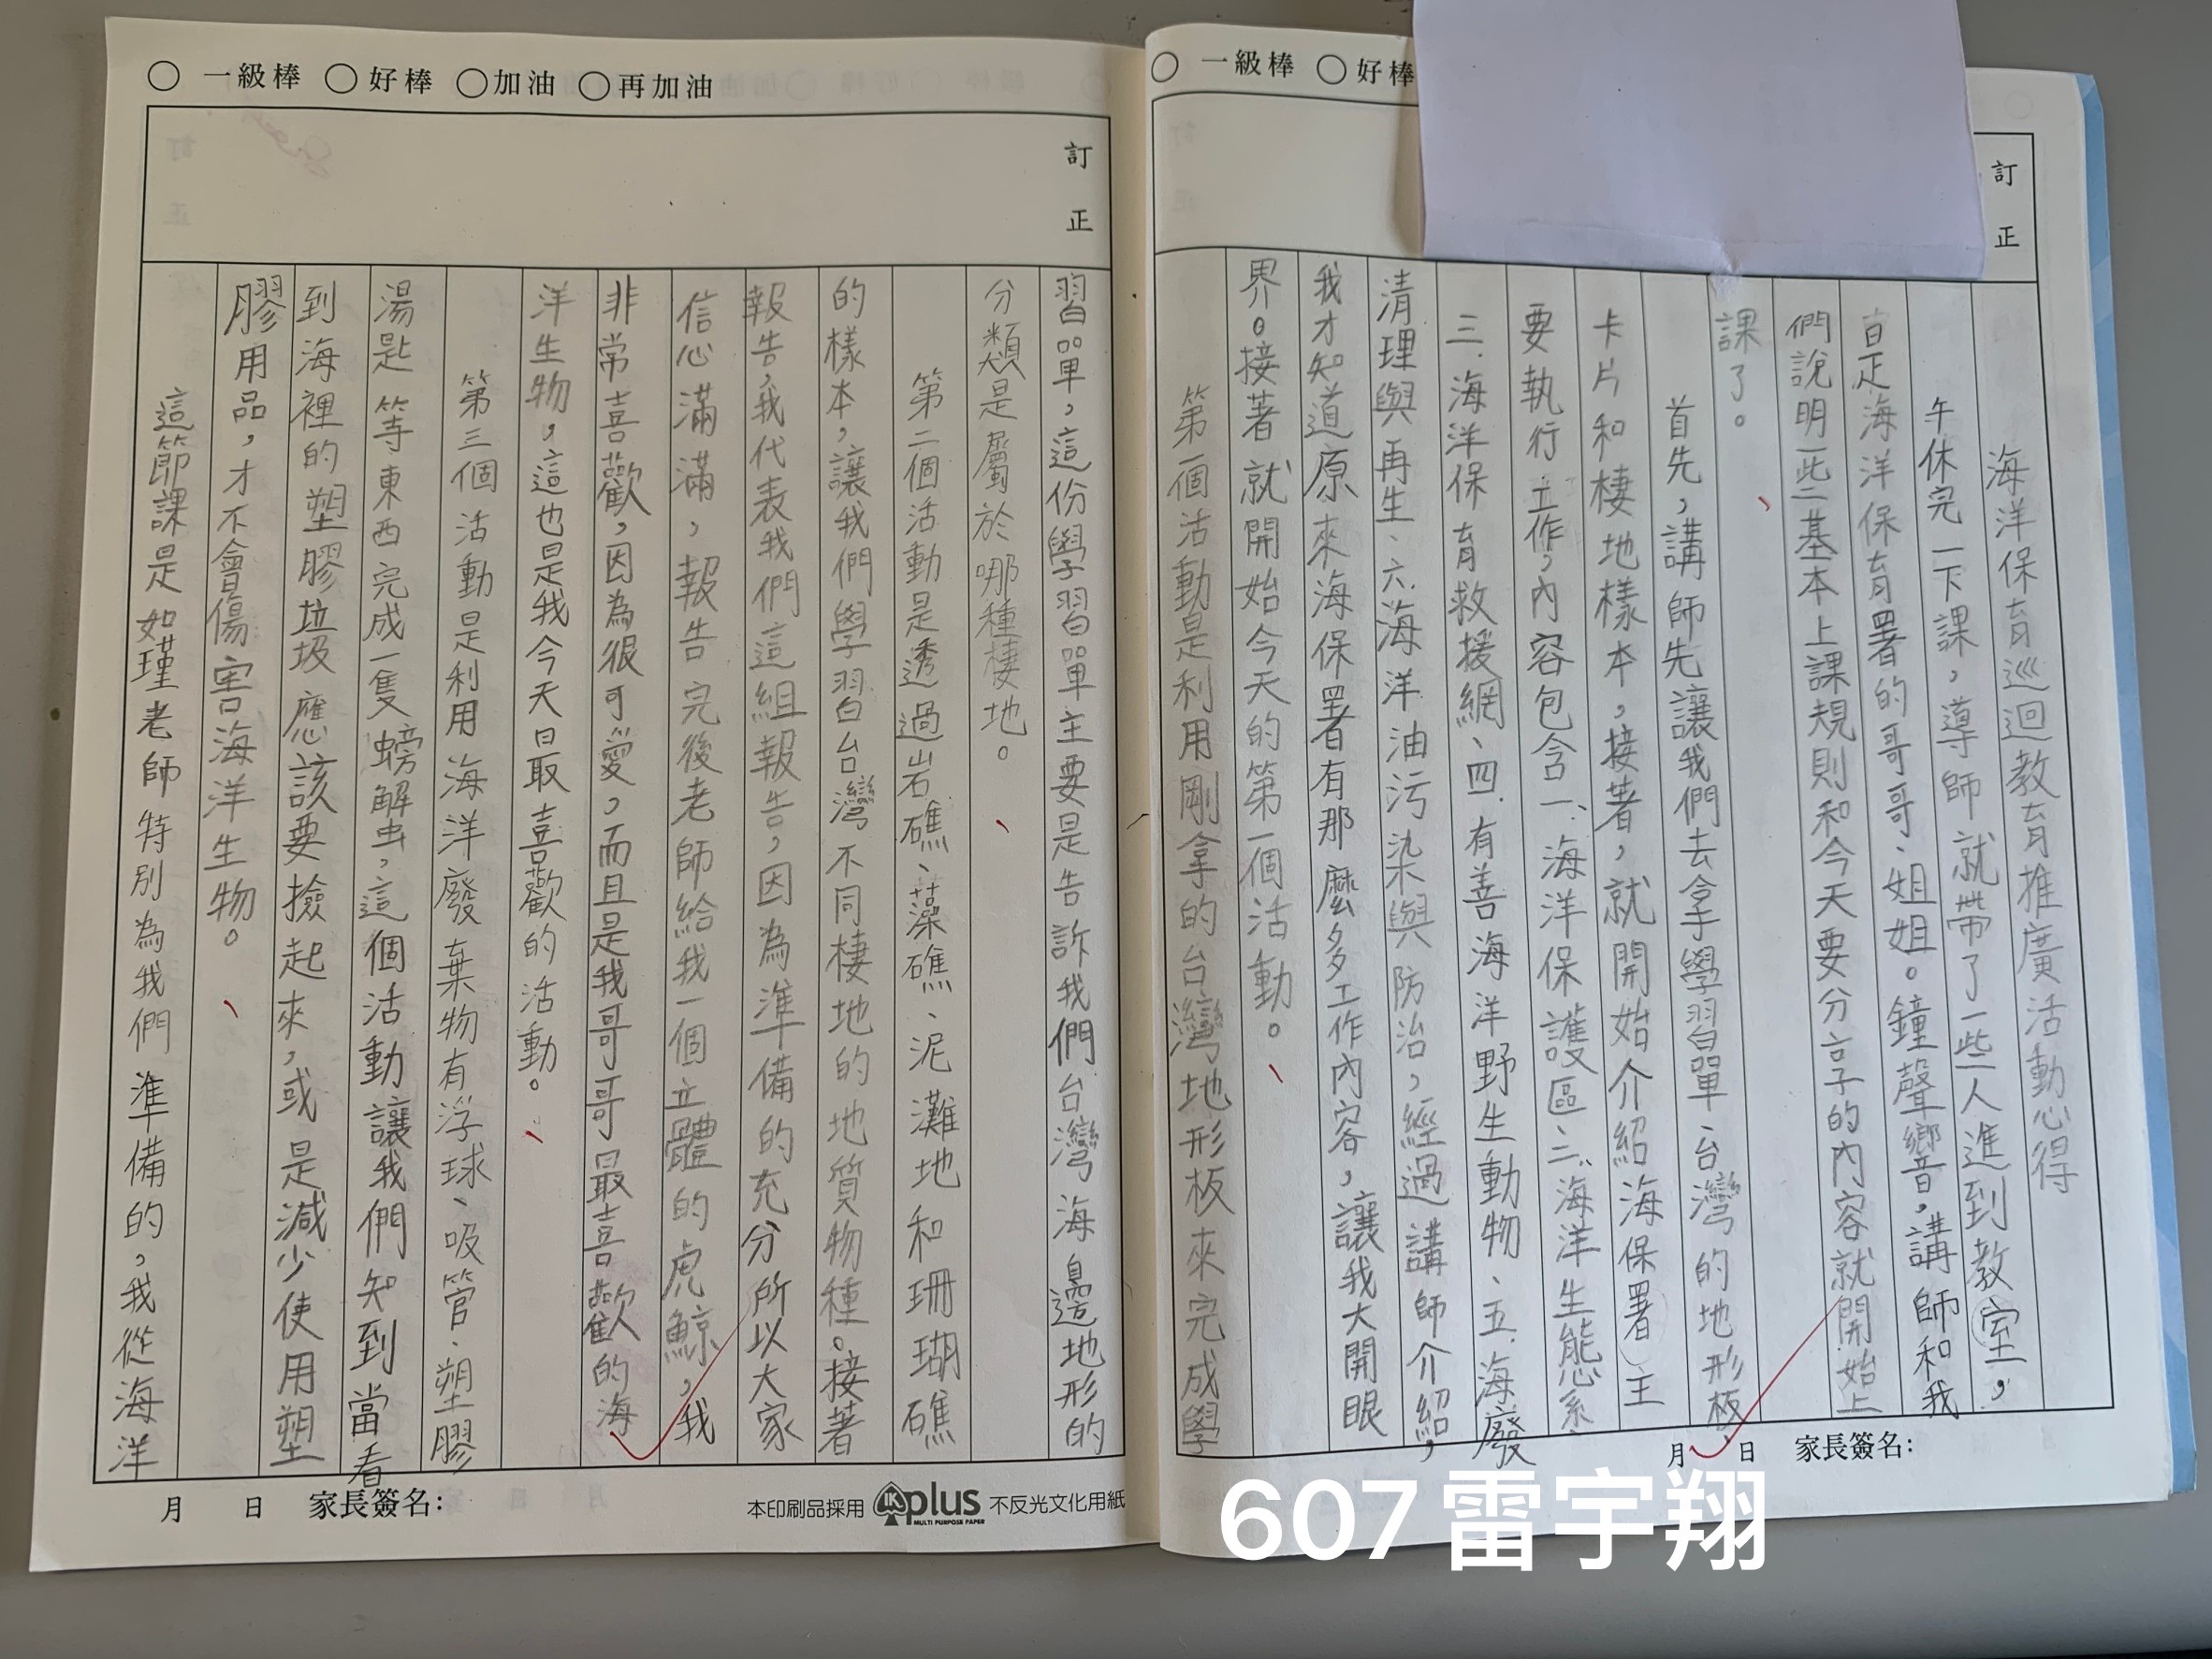 ○ 一級棒 ○ 好棒
訂正
海洋保育巡迴教育推廣活動心得
午休完一下課，導師就帶了一些人進到教室，
是海洋保育署的哥哥、姐姐。鐘聲響，講師和我
們說明一些基本上課規則和今天要分享的內容就開始上
課了。
首先，講師先讓我們去拿學習單、台灣的地形板、
卡片和棲地樣本，接著，就開始介紹海保署主
要執行工作，內容包含一、海洋保護區、二、海洋生態系、
三、海洋保育救援網、四、有善海洋野生動物、五、海廢
清理與再生、六、海洋油污染與防治，經過講師介紹，
我才知道原來海保署有那麼多工作內容，讓我大開眼
界。接著就開始今天的第一個活動。
第一個活動是利用剛拿的台灣地形板來完成學
月 日 家長簽名：
○ 一級棒 ○ 好棒 ○加油 ○再加油
訂正
習單，這份學習單主要是告訴我們台灣海邊地形的
分類是屬於哪種棲地。
第二個活動是透過岩礁、藻礁、泥灘地和珊瑚礁
的樣本，讓我們學習台灣不同棲地的地質物種。接著
報告，我代表我們這組報告，因為準備的充分所以大家
信心滿滿，報告完後老師給我一個立體的虎鯨，我
非常喜歡，因為很可愛，而且是我哥哥最喜歡的海
洋生物，這也是我今天最喜歡的活動。
第三個活動是利用海洋廢棄物有浮球、吸管、塑膠
湯匙等東西完成一隻螃蟹，這個活動讓我們知到當看
到海裡的塑膠垃圾應該要撿起來，或是減少使用塑
膠用品，才不會傷害海洋生物。
這節課是如瑾老師特別為我們準備的，我從海洋
月 日 家長簽名：
本印刷品採用 plus MULTI PURPOSE PAPER 不反光文化用紙
607雷宇翔